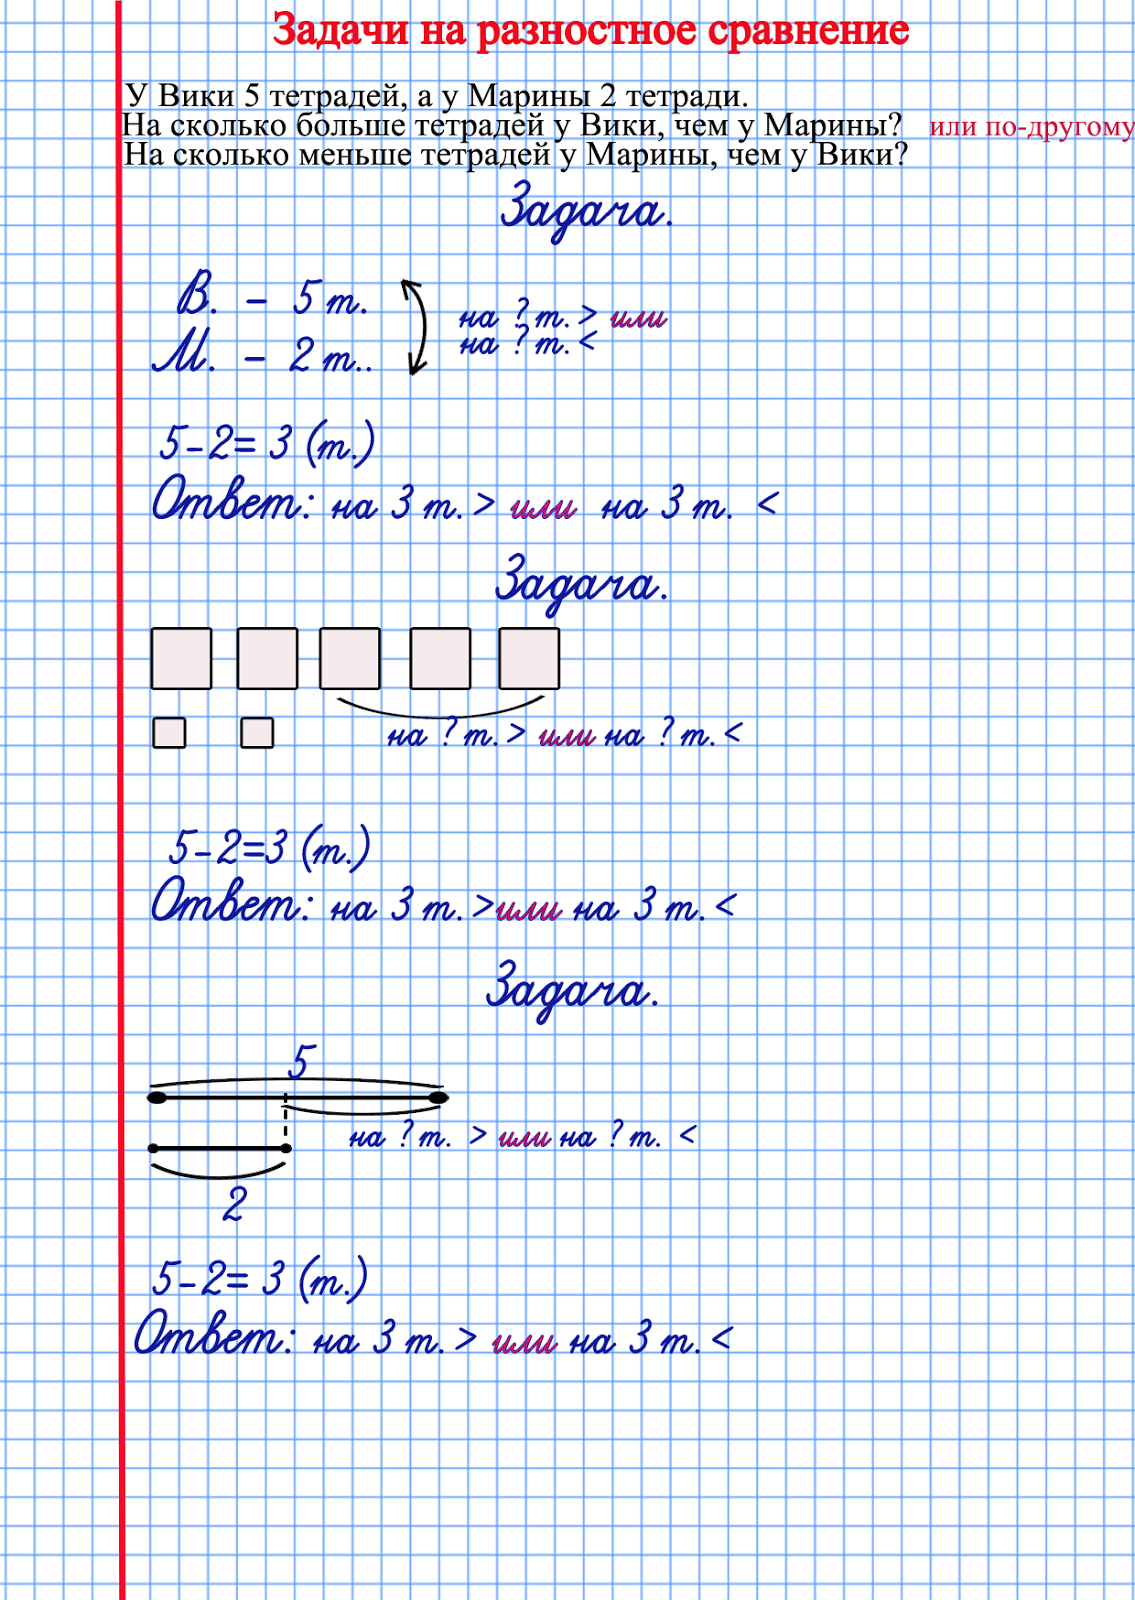 Задачи на разностное сравнение
У Вики 5 тетрадей, а у Марины 2 тетради.
На сколько больше тетрадей у Вики, чем у Марины? или по-другому
На сколько меньше тетрадей у Марины, чем у Вики?
Задача.
В. - 5 т.
на ? т. > или
на ? т. <
М. - 2 т..
5-2= 3 (т.)
Ответ: на 3 т. > или на 3 т. <
Задача.
на ? т. > или на ? т. <
5-2=3 (т.)
Ответ: на 3 т. >или на 3 т. <
Задача.
5
на ? т. > или на ? т. <
2
5-2= 3 (т.)
Ответ: на 3 т. > или на 3 т. <